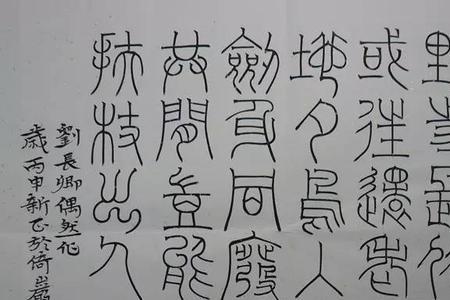 或往還老
地夕鳥入
劍身同廢
共閒豈能
扶杖出人
劉長卿偶然作
歲丙申新正於倚